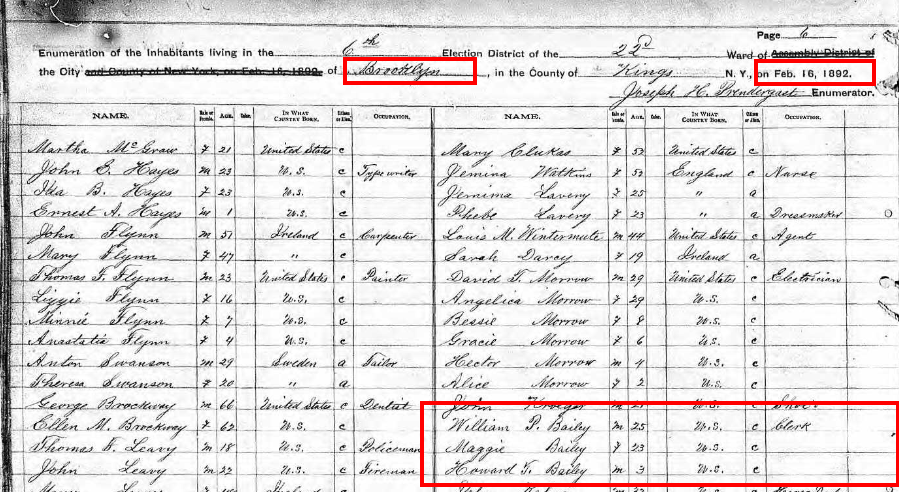 Page 6
Enumeration of the Inhabitants living in the 6th Election District of the 22d Ward of Assembly District of
the City and County of New York, on Feb. 16, 1892. of Brooklyn, in the County of Kings N. Y., on Feb. 16, 1892.
Joseph H. Prendergast Enumerator.
NAME. AGE. IN WHAT COUNTRY BORN. OCCUPATION. NAME. AGE. IN WHAT COUNTRY BORN. OCCUPATION.
Martha McGraw F 21 United States c
John S. Hayes M 23 U.S. c Typewriter
Ida B. Hayes F 23 U.S. c
Ernest A. Hayes M 1 U.S. c
John Flynn M 51 Ireland c Carpenter
Mary Flynn F 47 " c
Thomas F. Flynn M 23 United States c Painter
Lizzie Flynn F 16 U.S. c
Minnie Flynn F 7 U.S. c
Anastatia Flynn F 4 U.S. c
Anton Swanson M 29 Sweden a Tailor
Theresa Swanson F 20 " a
George Brockway M 66 United States c Dentist
Ellen M. Brockway F 62 U.S. c
Thomas F. Leavy M 18 U.S. c Policeman
John Leavy M 22 U.S. c Fireman
Mary Clukas F 52 United States c
Jemina Watkins F 52 England c Nurse
Jemima Lavery F 25 " a
Phebe Lavery F 23 " a Dressmaker
Louis M. Wintermute M 44 United States c Agent
Sarah Darcy F 19 Ireland a
David T. Morrow M 29 United States c Electrician
Angelica Morrow F 29 U.S. c
Bessie Morrow F 8 U.S. c
Gracie Morrow F 6 U.S. c
Hector Morrow M 4 U.S. c
Alice Morrow F 2 U.S. c
John M U.S. c
William P. Bailey M 25 U.S. c Clerk
Maggie Bailey F 23 U.S. c
Howard T. Bailey M 3 U.S. c